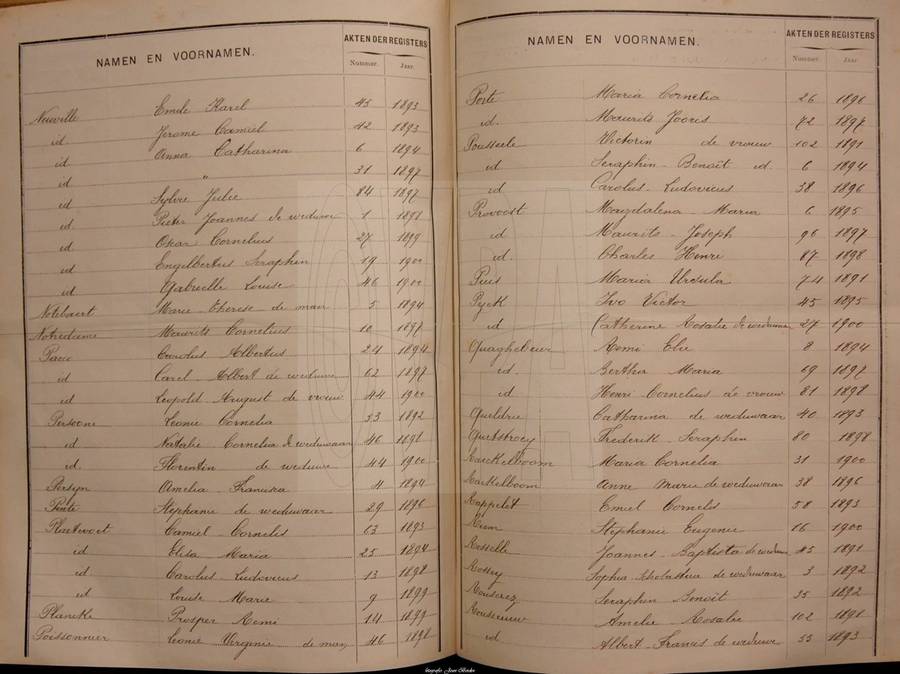 NAMEN EN VOORNAMEN. AKTEN DER REGISTERS
Nummer. Jaar.
Neuville Emile Karel 45 1893
id Jerome Camiel 42 1893
id Anna Catharina 6 1894
id " 31 1897
id Sylvie Julie 84 1897
id Pieter Joannes de weduwe 1 1898
id Oscar Cornelius 27 1899
id Engelbertus Seraphin 19 1900
id Gabrielle Louise 46 1900
Notebaert Marie Therese de man 5 1894
Notredame Maurits Cornelius 10 1897
Carolus Albertus 24 1894
id Carel Albert de weduwe 62 1897
id Leopold August de vrouw 44 1900
Persoone Leonie Cornelia 53 1892
id Natalie Cornelia de weduwaar 46 1898
id. Florentin de weduwe 44 1900
Persyn Amelia Francisca 4 1894
Stephanie de weduwaar 29 1896
Plaetevoet Camiel Cornelis 63 1893
id Elisa Maria 25 1894
id. Carolus Ludovicus 13 1898
id Louise Marie 9 1899
Plancke Prosper Remi 14 1899
Poissonnier Leonie Virginie de man 46 1898
NAMEN EN VOORNAMEN. AKTEN DER REGISTERS
Nummer. Jaar.
Porte Maria Cornelia 26 1896
id. Maurits Jooris 72 1897
Pousseele Victorin de vrouw 102 1891
id Seraphin Benoît id. 6 1894
id Carolus Ludovicus 38 1896
Provoost Magdalena Maria 6 1895
id Maurits Joseph 96 1897
id. Charles Henri 87 1898
Puis Maria Ursula 74 1891
Pyck Ivo Victor 45 1895
id Catherine Rosalie de weduwe 27 1900
Quaghebeur Remi Elie 8 1894
id. Bertha Maria 69 1897
id Henri Cornelius de vrouw 81 1898
Queldrie Catharina de weduwaar 40 1893
Quetstroey Frederik Seraphin 80 1898
Raeckelboom Maria Cornelia 31 1900
Raekelboom Anne Marie de weduwaar 38 1896
Rappelet Emiel Cornelis 58 1893
Stephanie Eugenie 16 1900
Rosselle Joannes Baptista de weduwe 45 1891
Rossey Sophia Scholastica de weduwaar 3 1892
Rouserez Seraphin Benoît 35 1892
Rousseeuw Amelie Rosalie 102 1891
id Albert Francis de weduwe 55 1893